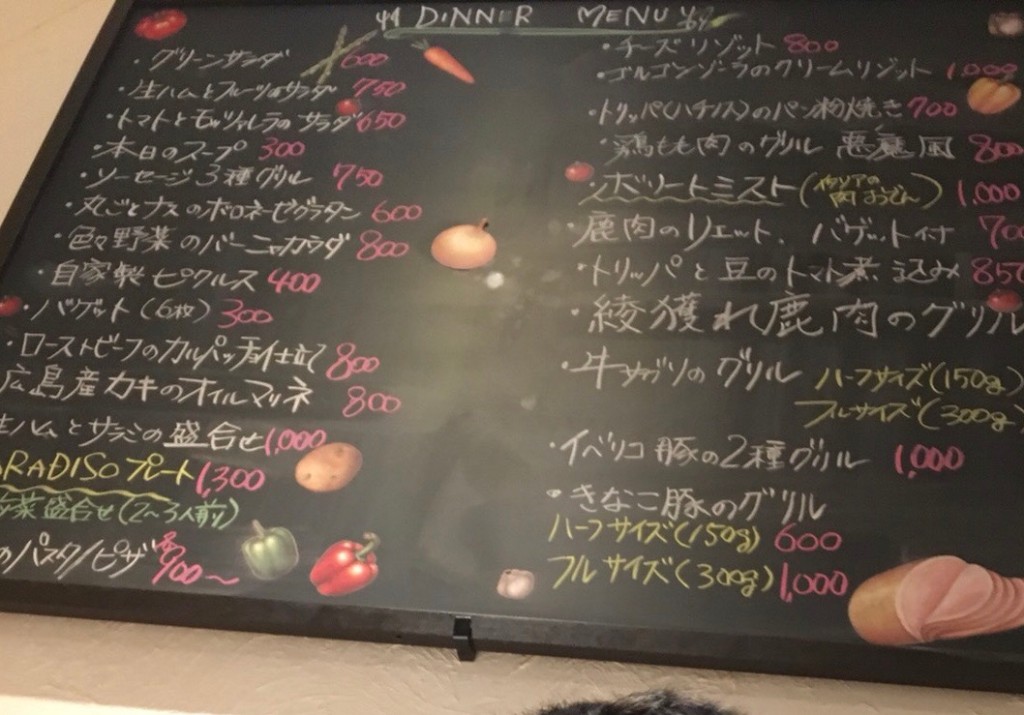 DINNER MENU
・グリーンサラダ 600
・生ハムとフルーツのサラダ 750
・トマトとモッツァレラのサラダ 650
・本日のスープ 300
・ソーセージ3種グリル 750
・丸ごとナスのボロネーゼグラタン 600
・色々野菜のバーニャカウダ 800
・自家製ピクルス 400
・バゲット(6枚) 300
・ローストビーフのカルパッチョ仕立て 800
広島産カキのオイルマリネ 800
生ハムとサラミの盛合せ 1,000
RADISOプレート 1,300
菜盛合せ(2~3人前)
のパスタ/ピザ 900~
・チーズリゾット 800
・ゴルゴンゾーラのクリームリゾット 1,000
・トリッパ(ハチノス)のパン粉焼き 700
・鶏もも肉のグリル 悪魔風 800
ボリートミスト(イタリアの肉おでん) 1,000
・鹿肉のリエット、バゲット付 700
・トリッパと豆のトマト煮込み 850
・綾獲れ鹿肉のグリル
・牛サガリのグリル ハーフサイズ(150g)
フルサイズ(300g)
・イベリコ豚の2種グリル 1,000
・きなこ豚のグリル
ハーフサイズ(150g) 600
フルサイズ(300g) 1,000